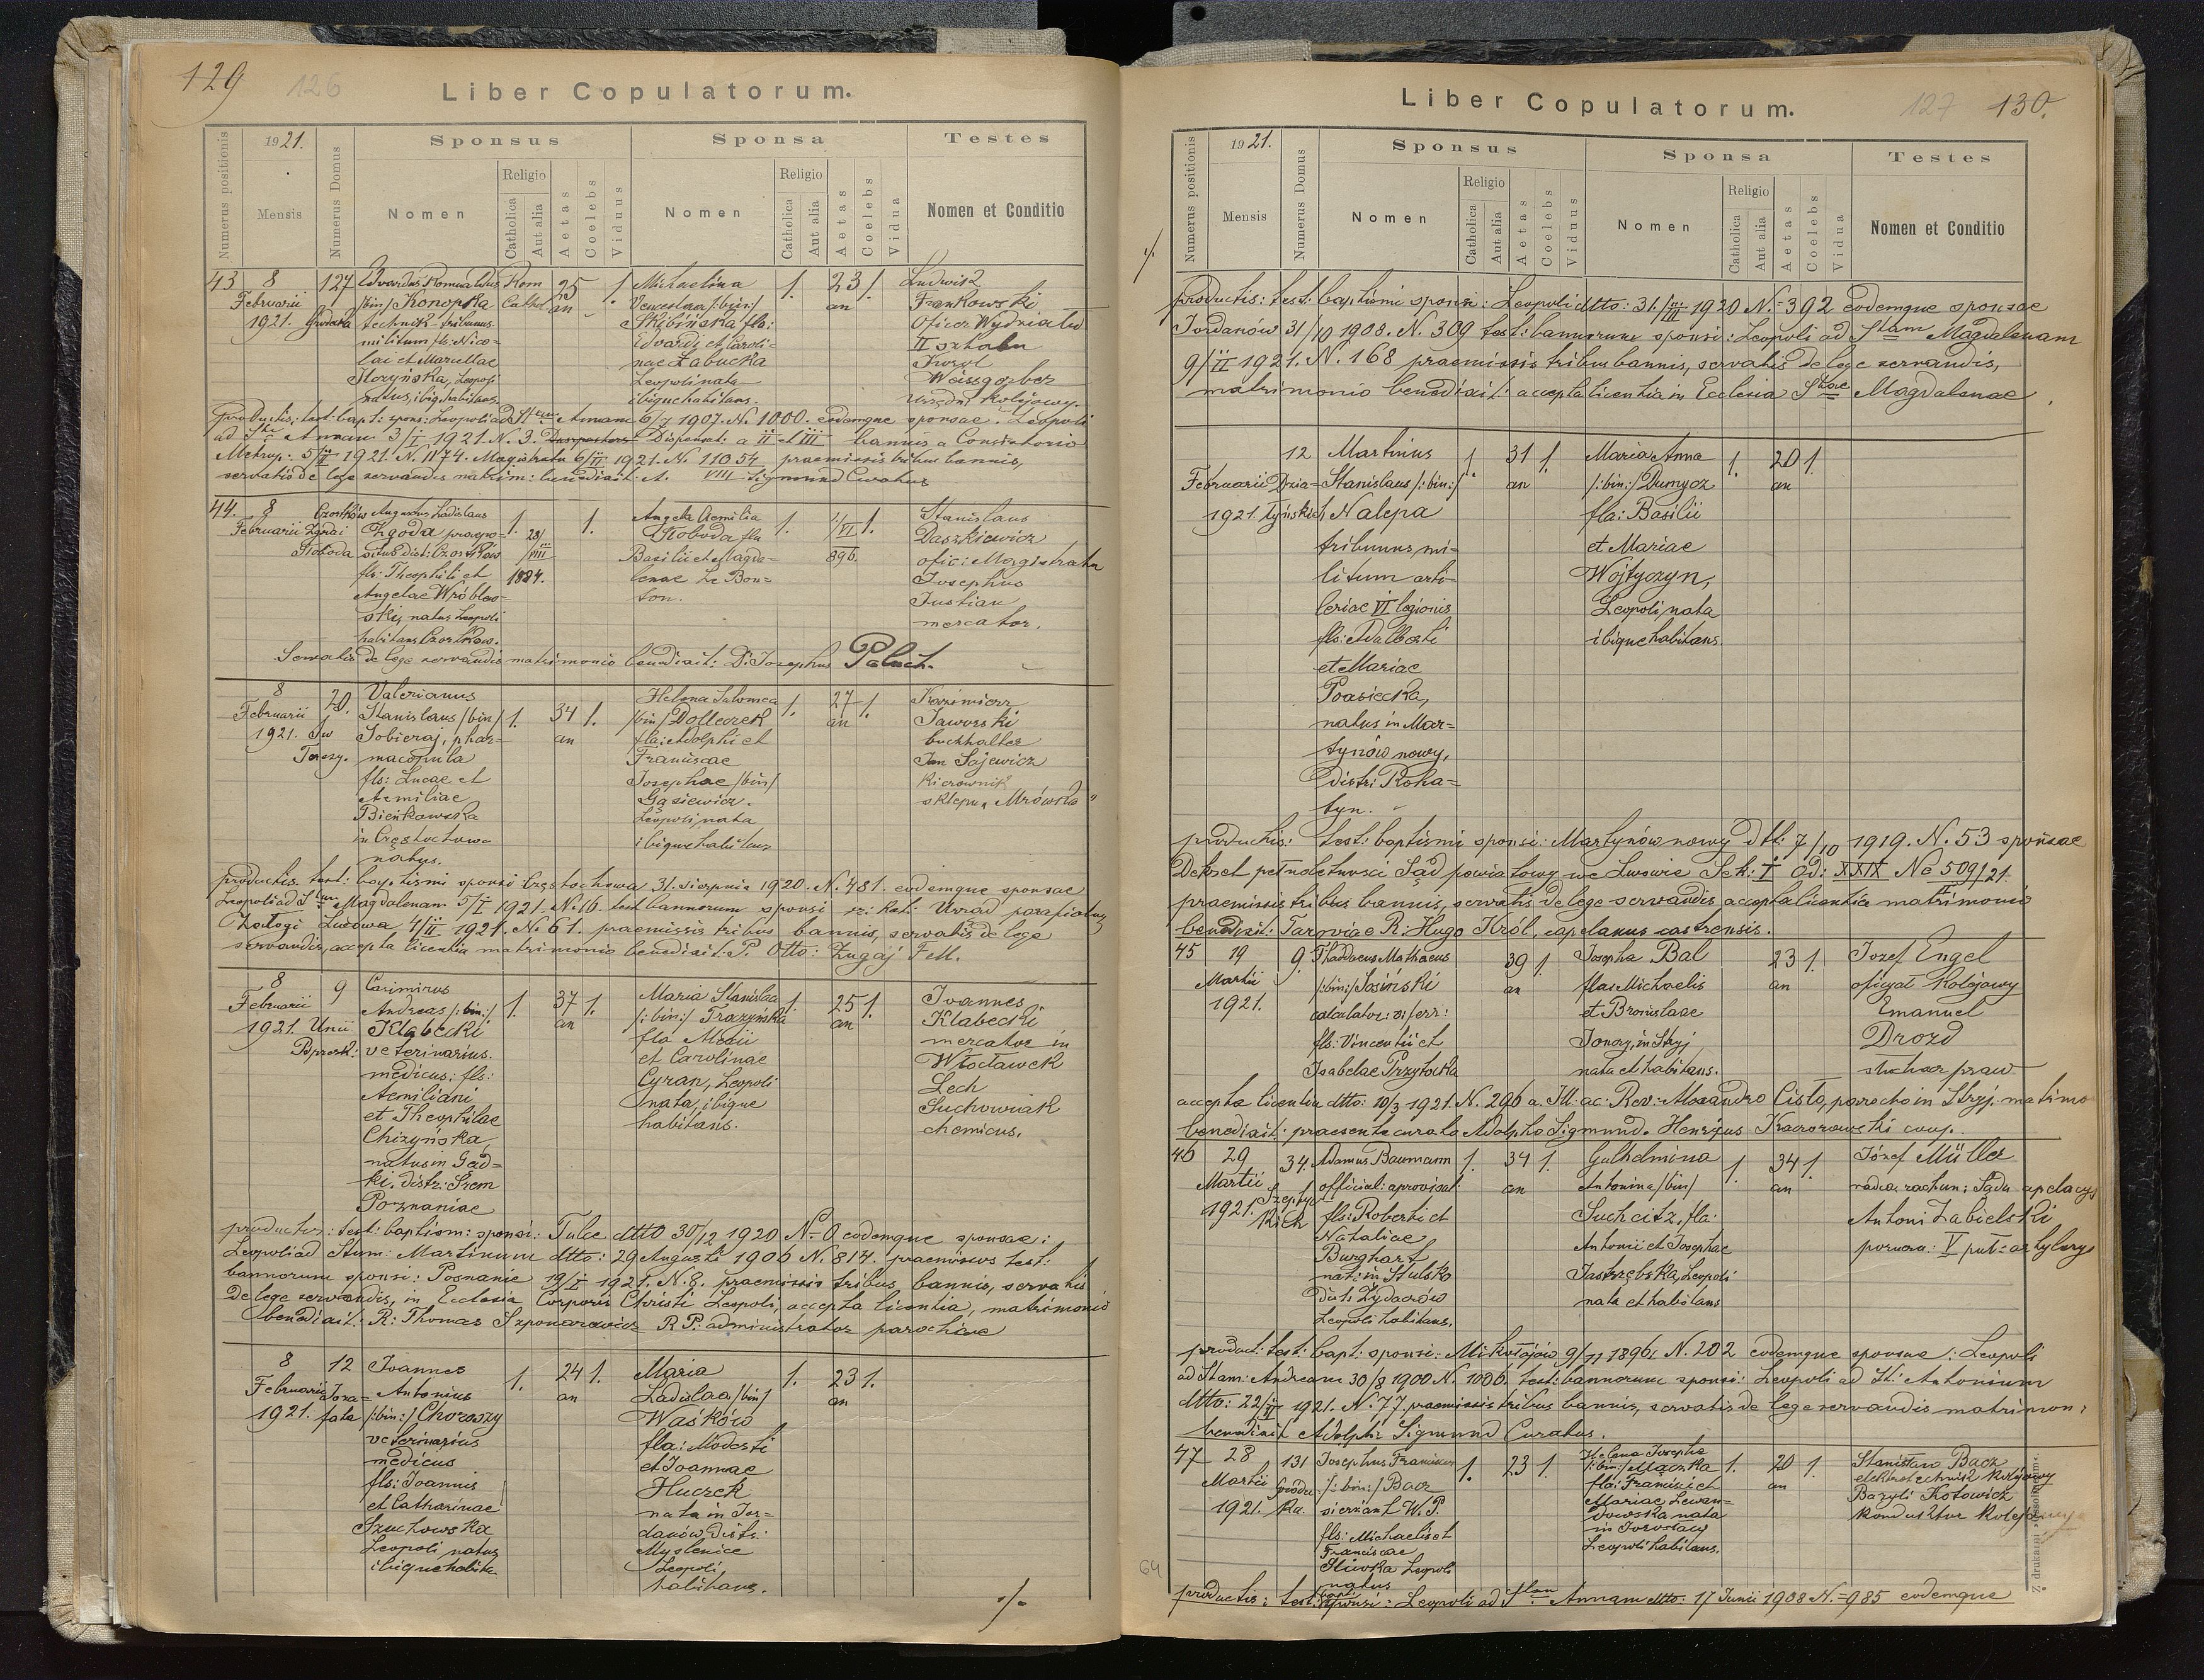 129 126
Liber Copulatorum.
Numerus positionis
1921.
Mensis
Numerus Domus
Sponsus
Nomen
Religio
Catholica
Aut alia
Aetas
Coelebs
Viduus
Sponsa
Nomen
Religio
Catholica
Aut alia
Aetas
Coelebs
Vidua
Testes
Nomen et Conditio
43 8 127 Edvardus Romualdus Rom 25 1. Michaelina 1. 23 1. Ludwik
Februarii /bin/ Konopka Cathol an Venceslaa /:bin:/ an Frankowski
1921. Grodecka technik tribunus Skibińska fla: Oficer Wydziału
militum fls: Nico= Edvardi et Caroli= II sztabu
lai et Marcellae nae Łabucka Karol
Horyńska, Leopoli Leopoli nata Weissgorber
natus, ibiq. habitans. ibique habitans. Urzędn. kolejowy.
productis: test: bapt: spons: Leopoli ad Stam Annam 6/7 1907. N. 1000. eodemque sponsae: Leopoli
ad Stam Annam 3/I 1921. N. 3. Dispensat: a II et III bannis a Consistorio
Metrop: 5/II 1921. N. 1174. Magistratu 6/II 1921. N. 11054 praemissis tribus bannis,
servatis de lege servandis matrim: benedixit: A. VIII Sigmund Curatus
44. 8 Czortków Augustus Ladislaus 1. 28/VIII 1. Angela Aemilia 1. 1/VI 1. Stanislaus
Februarii Zgoda praepo= 1884. Słoboda fla 896. Daszkiewicz
Słoboda situs dist: Czortków Basilii et Magda= ofic: Magistratu
fls: Theophili et lenae Le Bon= Josephus
Angelae Wróblew= ton. Justian
ski, natus Leopoli mercator.
habitans Czortków.
Servatis de lege servandis matrimonio benedixit: D: Josephus Paluch.
8 20. Valerianus Helena Salomea 1. 27 1. Kazimierz
Februarii Stanislaus /bin/ 1. 34 1. /bin/ Dolleczek an Jaworski
1921. Św Sobieraj, phar= an fla: Adolphi et buchhalter
Teresy. macopola Franciscae Jan Sajewicz
fls: Lucae et Josephae /bin/ kierownik
Aemiliae Gąsiewicz. sklepu „Mrówka"
Bieńkowska Leopoli nata
in Częstochowa ibique habitans
natus.
productis test: baptismi sponsi Częstochowa 31. sierpnia 1920. N. 481. eodemque sponsae
Leopoli ad Stam Magdalenam 5/I 1921. N. 16. test bannorum sponsi rz: kat: Urząd parafialny
Załogi Lwowa 4/II 1921. N. 61. praemissis tribus bannis, servatis de lege
servandis, accepta licentia matrimonio benedixit: P. Otto: Zugaj F.M.
8 9 Casimirus Maria Stanislaa 1. 25 1. Joannes
Februarii Andreas /:bin:/ 1. 37 1. /:bin:/ Trazyńska an Klabecki
1921. Unii Klabecki an fla Marii mercator in
veterinarius et Carolinae Włocławek
medicus: fls: Cyran, Leopoli Lech
Aemiliani nata, ibique Suchowiak
et Theophilae habitans. chemicus.
Chizyńska
natus in Gad=
ki. distr: Śrem
Poznaniae
productis: test: baptism: sponsi: Tulce dtto 30/12 1920 N- 0 eodemque sponsae:
Leopoli ad Stum: Martinum dtto: 29 Augusti 1906 N. 814. praemissis test:
bannorum sponsi: Posnanie 19/I 1921. N. 8. praemissis tribus bannis, servatis
de lege servandis, in Ecclesia Corporis Christi Leopoli, accepta licentia, matrimonio
benedixit: R: Thomas Szponarowicz R P: administrator parochiae
8 12 Joannes 1. 24 1. Maria 1. 23 1.
Februarii Joza= Antonius an Ladislaa /bin/ an
1921. fata /:bin:/ Choroszy Waśków
veterinarius fla: Modesti
medicus et Joannae
fls: Joannis Huczek
et Catharinae nata in Jor=
Szuchowska danów distr:
Leopoli natus Myslenice
ibique habita Leopoli
habitans.
./.
127 130.
Liber Copulatorum.
Numerus positionis
1921.
Mensis
Numerus Domus
Sponsus
Nomen
Religio
Catholica
Aut alia
Aetas
Coelebs
Viduus
Sponsa
Nomen
Religio
Catholica
Aut alia
Aetas
Coelebs
Vidua
Testes
Nomen et Conditio
./.
productis: test: baptismi sponsi: Leopoli dtto: 31/III 1920 N= 392 eodemque sponsae
Jordanów 31/10 1908. N. 309 test: bannorum sponsi: Leopoli ad Stam Magdalenam
9/II 1921. N. 168 praemissis tribus bannis, servatis de lege servandis,
matrimonio benedixit: accepta licentia in Ecclesia Stae Magdalenae
12 Martinus 1 31 1. Maria Anna 1. 20 1.
Februarii Dzia= Stanislaus /:bin:/ an /:bin:/ Dumycz an
1921. łyńskich Nalepa fla: Basilii
tribunus mi= et Mariae
litum arti= Wojtyczyn,
leriae VI legionis Leopoli nata
fls: Adalberti ibique habitans.
et Mariae
Poasiecka,
natus in Mar=
tynów nowy,
distr: Roha=
tyn.
productis: test: baptismi sponsi: Martynów nowy dtt: 7/10 1919. N. 53 sponsae
Dekret pełnoletności Sąd powiatowy we Lwowie Sek: I Od: XXIX No 509/21.
praemissis tribus bannis, servatis de lege servandis accepta licentia matrimonio
benedixit: Tarnoviae R: Hugo Król, capelanus castrensis.
45 19 9. Thaddaeus Mathaeus 39 1. Josepha Bal 23 1. Jozef Engel
Martii /:bin:/ Josiński an fla Michaelis an oficyał kolejowy
1921. calculator: et Bronislaae Emanuel
fls: Vincentii et Jonozy, in Stryj Drozd
Isabelae Przyłocka nata et habitans. słuchacz praw
accepta licentia dtto: 10/3 1921. N. 296 a. Ill: ac: Rev: Alexandro Cisło, parocho in Stryj. matimo
benedixit: praesente curato Adolpho Sigmund. Henricus Kaczorowski coop.
46 29 34. Adamus Baumann 1. 34 1. Gulhelmina 1. 34 1. Józef Müller
Martii Szeptyc official: aprovisat: an Antonina /bin/ an radca rachun: Sądu apelacyj
1921. kich fls: Roberti et Suchcitz, fla: Antoni Zabielski
Nataliae Antonii et Josephae V puł= artylerji
Burghart Jastrzębska, Leopoli
nat: in Stulsko nata et habitans
dist: Żydaczów
Leopoli habitans.
product: test: bapt: sponsi: Mikołajów 9/11 1896. N. 202 eodemque sponsae: Leopoli
ad Stam: Andream 30/8 1900 N. 1006. test: bannorum sponsi: Leopoli ad St: Antonium
dtto: 22/II 1921. N. 77. praemissis tribus bannis, servatis de lege servandis matrimon:
benedixit Adolph: Sigmund Curatus.
47 28 131 Josephus Franciscus 1. 23 1. Helena Josepha 1. 20 1. Stanisław Bacz
Martii Gródec /:bin:/ Bacz /:bin:/ Mączka an elektrotechnik kolejowy
1921 ka. sierżant W.P. fla: Francisci et Bazyli Kotowicz
fls: Michaelis et Mariae Lewan= konduktor kolejowy
Franciscae dowska nata
Śliwka Leopoli in Jarosław
natus Leopoli habitans.
productis: test: bapt: sponsi: Leopoli ad Stam Annam dtto: 17 Junii 1908 N.= 985 eodemque
64